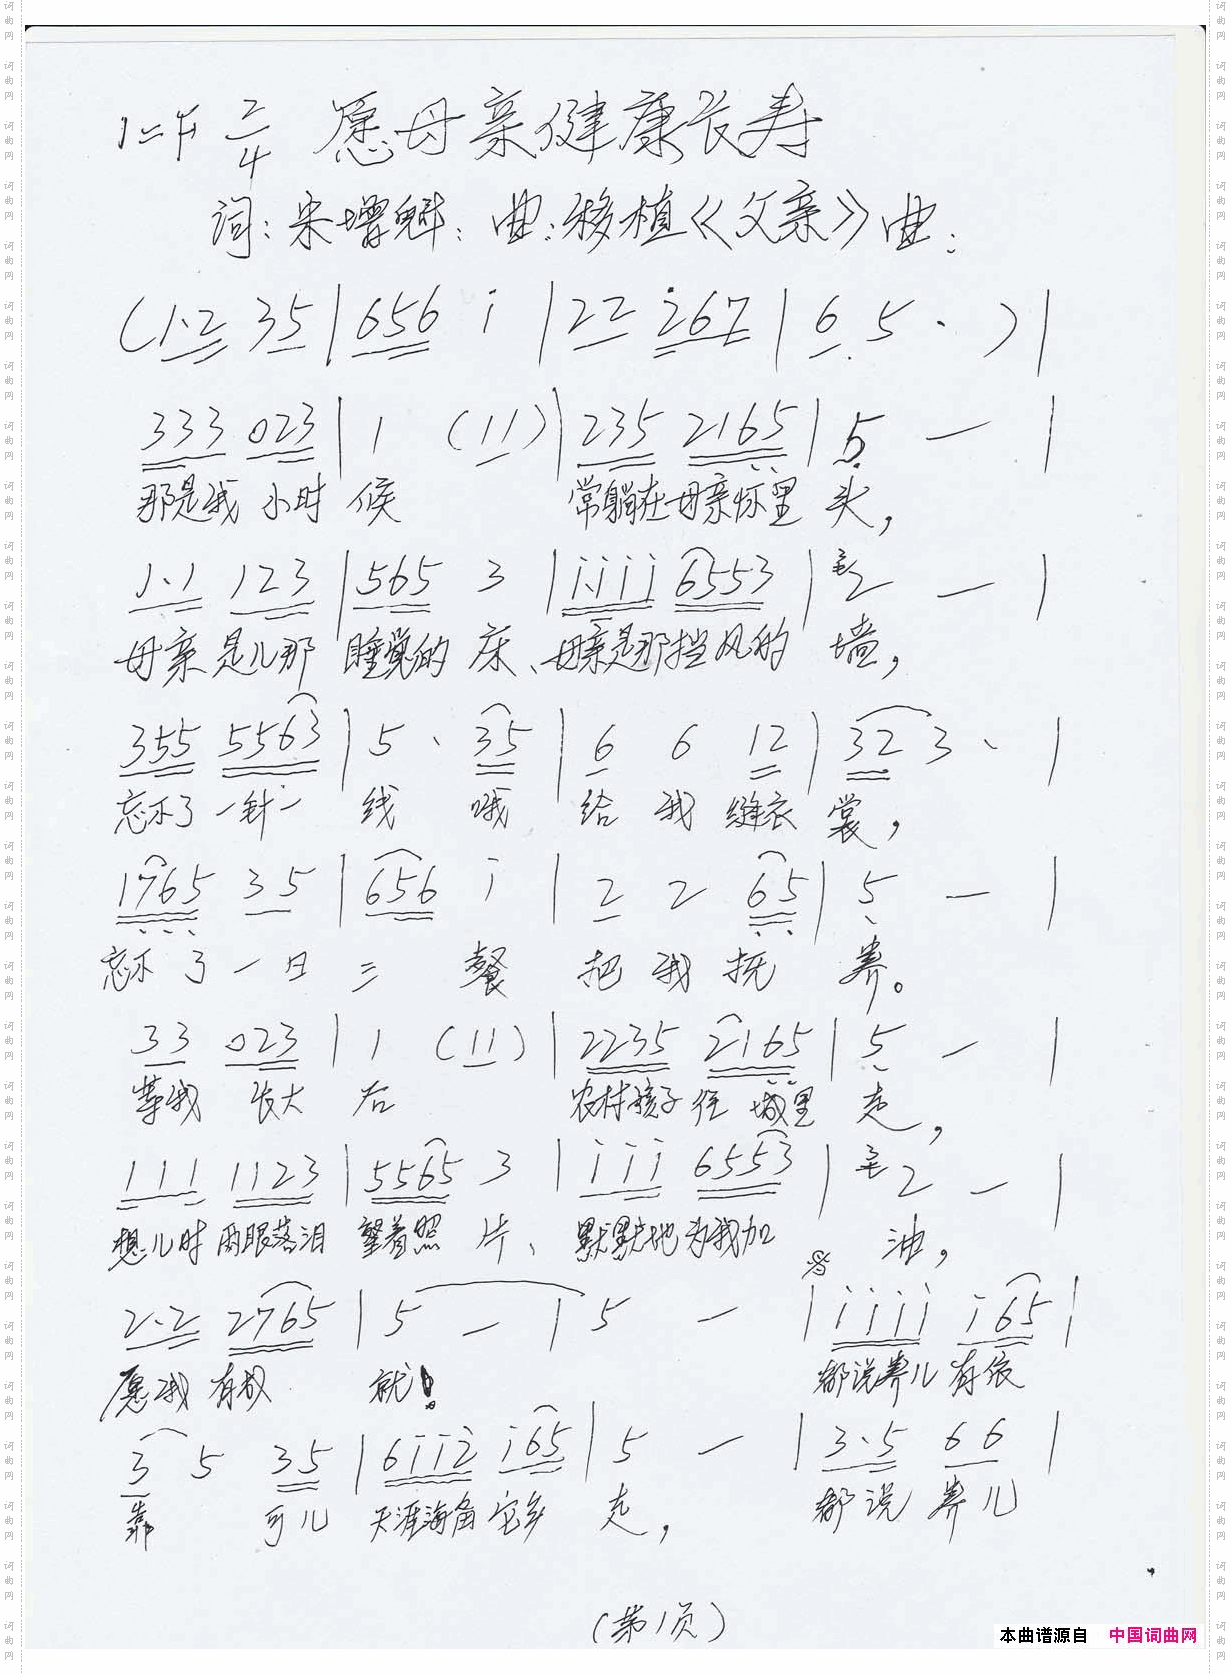 1=F 2/4 愿母亲健康长寿
词:宋增魁; 曲:移植《父亲》曲:
(1·2 35|656 i|22 i67|6 5 · )|
333 023|1 (11)|235 2165|5 — |
那是我 小时 候 常躺在母亲怀里 头,
1·1 123|565 3|i·iii 6553|2 — |
母亲 是儿那 睡觉的 床、母亲是那挡风的 墙,
355 5563|5 · 35|6 6 12|32 3 · |
忘不了 一针一 线 哦 给 我 缝衣 裳,
1765 35|656 i|2 2 65|5 — |
忘不 了 一 日 三 餐 把 我 抚 养。
33 023|1 (11)|2235 2165|5 — |
等我 长大 后 农村孩子 往 城里 走,
111 1123|5565 3|iii 6553|2 — |
想儿时 两眼落泪 望着照 片、 默默地 为我加 油,
2·2 2765|5 — |5 — |iiii i65|
愿我 有成 就! 都说养儿 有依
3 5 35|6ii2 i65|5 — |3·5 66|
靠 可儿 天涯海角 它乡 走, 都 说 养儿
(第1页)
本曲谱源自 中国词曲网
词曲网